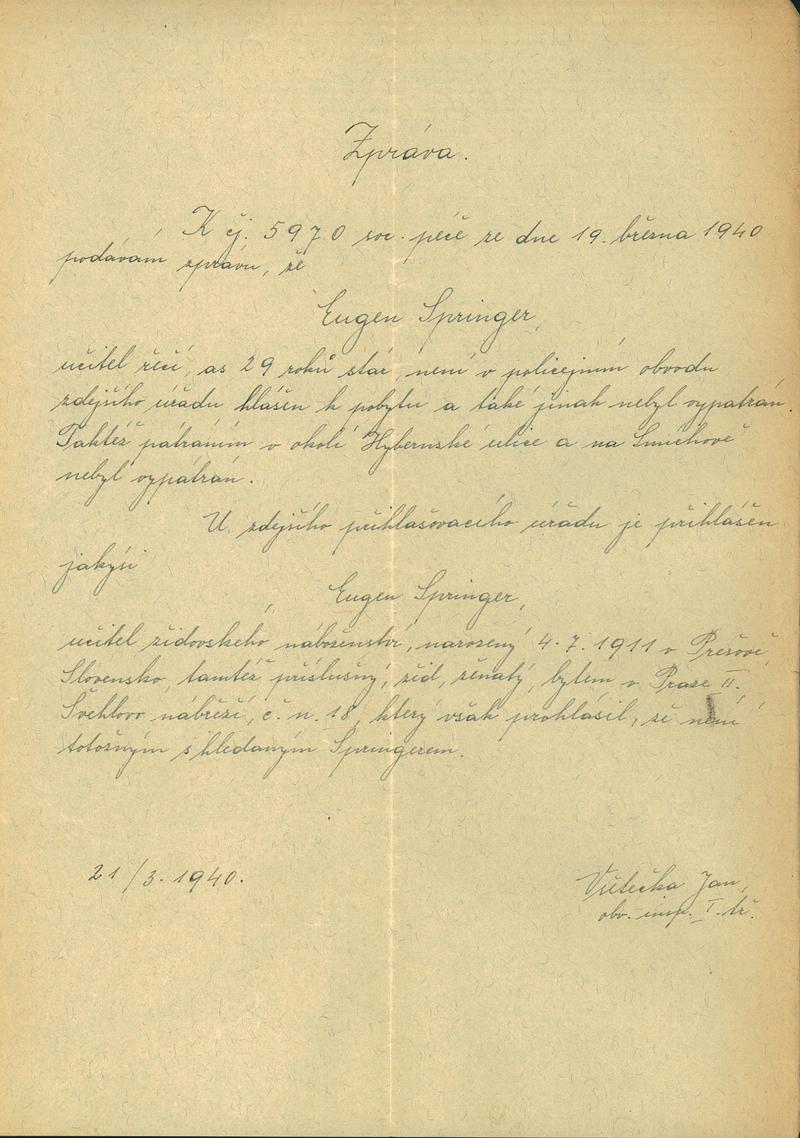 Zpráva.
K čj. 5970 soc. péče ze dne 19. března 1940
podávám zprávu, že
Eugen Springer,
učitel řečí, as 29 roků stár, není v policejním obvodu
zdejšího úřadu hlášen k pobytu a také jinak nebyl vypátrán.
Taktéž pátráním v okolí Hybernské ulice a na Smíchově
nebyl vypátrán.
U zdejšího přihlašovacího úřadu je přihlášen
jakýsi
Eugen Springer,
učitel židovského náboženství, narozený 4.7.1911 v Prešově,
Slovensko, tamtéž příslušný, žid, ženatý, bytem v Praze II.
Švehlovo nábřeží, č. n. 18, který však prohlásil, že není
totožným s hledaným Springerem.
21/3. 1940.
Jan,
obv. insp. I. tř.